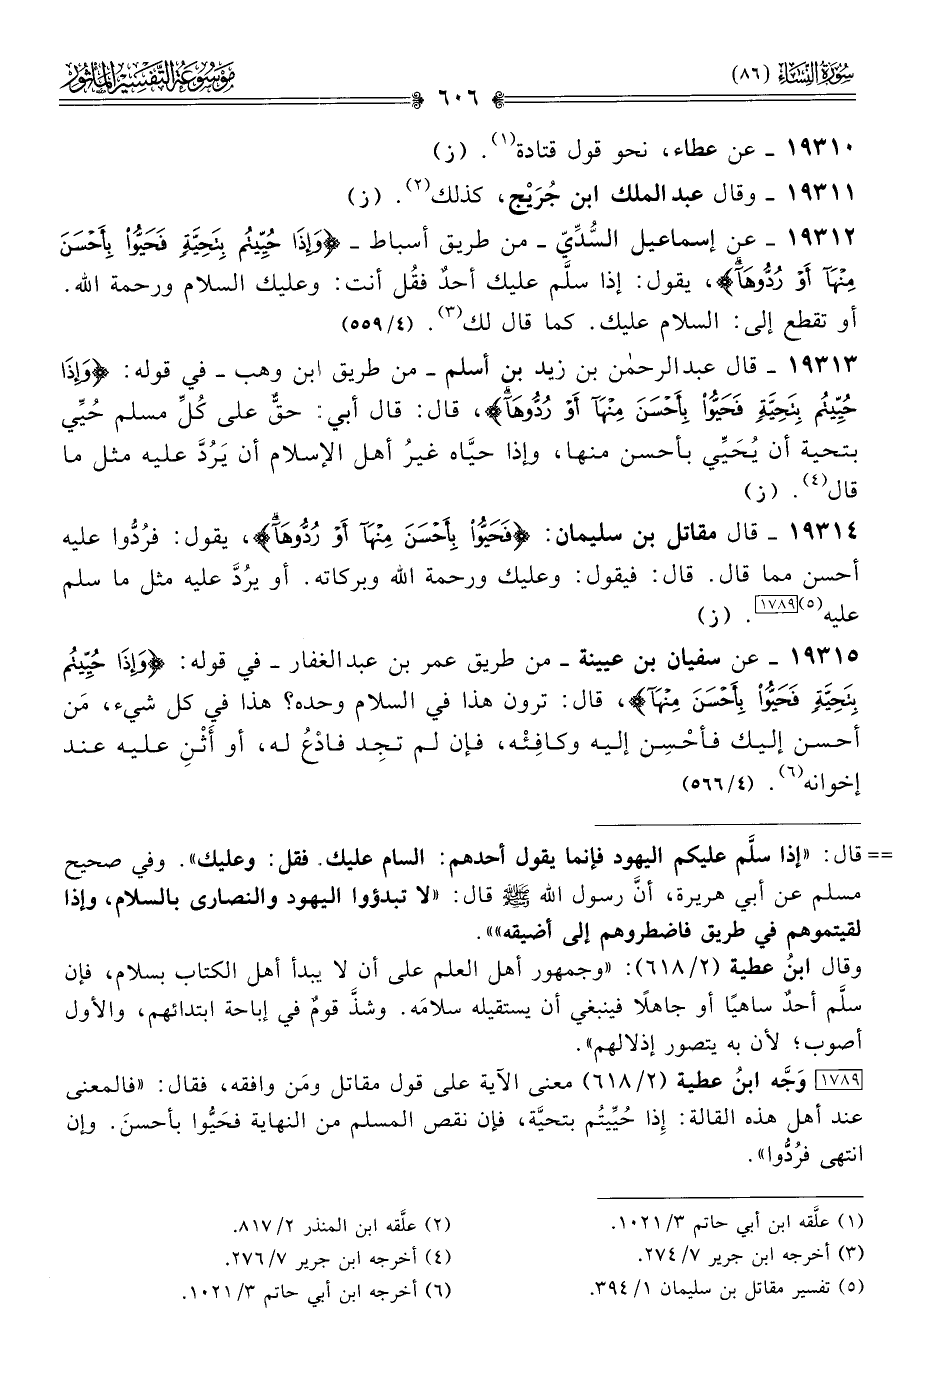 سُورَةُ النِّسَاءِ (٨٦)
٦٠٦
مَوْسُوعَةُ التَّفْسِيرِ المَأْثُورِ
١٩٣١٠ ـ عن عطاء، نحو قول قتادة(١). (ز)
١٩٣١١ ـ وقال عبد الملك ابن جُرَيْج، كذلك(٢). (ز)
١٩٣١٢ ـ عن إسماعيل السُّدِّيِّ ـ من طريق أسباط ـ ﴿وَإِذَا حُيِّيتُم بِتَحِيَّةٍ فَحَيُّوا۟ بِأَحْسَنَ
مِنْهَآ أَوْ رُدُّوهَآۗ﴾، يقول: إذا سلَّم عليك أحدٌ فقُل أنت: وعليك السلام ورحمة الله.
أو تقطع إلى: السلام عليك. كما قال لك(٣). (٥٥٩/٤)
١٩٣١٣ ـ قال عبدالرحمٰن بن زيد بن أسلم ـ من طريق ابن وهب ـ في قوله: ﴿وَإِذَا
حُيِّيتُم بِتَحِيَّةٍ فَحَيُّوا۟ بِأَحْسَنَ مِنْهَآ أَوْ رُدُّوهَآۗ﴾، قال: قال أبي: حقٌّ على كُلِّ مسلم حُيِّي
بتحية أن يُحَيِّي بأحسن منها، وإذا حيَّاه غيرُ أهل الإسلام أن يَرُدَّ عليه مثل ما
قال(٤). (ز)
١٩٣١٤ ـ قال مقاتل بن سليمان: ﴿فَحَيُّوا۟ بِأَحْسَنَ مِنْهَآ أَوْ رُدُّوهَآۗ﴾، يقول: فرُدُّوا عليه
أحسن مما قال. قال: فيقول: وعليك ورحمة الله وبركاته. أو يرُدَّ عليه مثل ما سلم
عليه(٥)[١٧٨٩]. (ز)
١٩٣١٥ ـ عن سفيان بن عيينة ـ من طريق عمر بن عبدالغفار ـ في قوله: ﴿وَإِذَا حُيِّيتُم
بِتَحِيَّةٍ فَحَيُّوا۟ بِأَحْسَنَ مِنْهَآ﴾، قال: ترون هذا في السلام وحده؟ هذا في كل شيء، مَن
أحسن إليك فأحْسِن إليه وكافِئْه، فإن لم تجد فادْعُ له، أو أَثْنِ عليه عند
إخوانه(٦). (٥٦٦/٤)
== قال: «إذا سلَّم عليكم اليهود فإنما يقول أحدهم: السام عليك. فقل: وعليك». وفي صحيح
مسلم عن أبي هريرة، أنَّ رسول الله ﷺ قال: «لا تبدؤوا اليهود والنصارى بالسلام، وإذا
لقيتموهم في طريق فاضطروهم إلى أضيقه»».
وقال ابنُ عطية (٦١٨/٢): «وجمهور أهل العلم على أن لا يبدأ أهل الكتاب بسلام، فإن
سلَّم أحدٌ ساهيًا أو جاهلًا فينبغي أن يستقيله سلامَه. وشذَّ قومٌ في إباحة ابتدائهم، والأول
أصوب؛ لأن به يتصور إذلالهم».
[١٧٨٩] وَجَّه ابنُ عطية (٦١٨/٢) معنى الآية على قول مقاتل ومَن وافقه، فقال: «فالمعنى
عند أهل هذه القالة: إِذا حُيِّيتُم بتحيَّة، فإن نقص المسلم من النهاية فحَيُّوا بأحسنَ. وإن
انتهى فرُدُّوا».
(١) علَّقه ابن أبي حاتم ٣/ ١٠٢١.
(٢) علَّقه ابن المنذر ٢/ ٨١٧.
(٣) أخرجه ابن جرير ٧/ ٢٧٤.
(٤) أخرجه ابن جرير ٧/ ٢٧٦.
(٥) تفسير مقاتل بن سليمان ١/ ٣٩٤.
(٦) أخرجه ابن أبي حاتم ٣/ ١٠٢١.